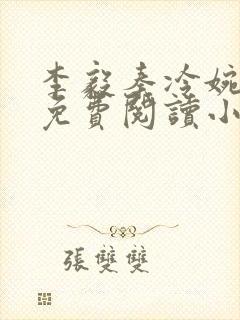 李毅秦冷婉
免費閱讀小
張雙雙